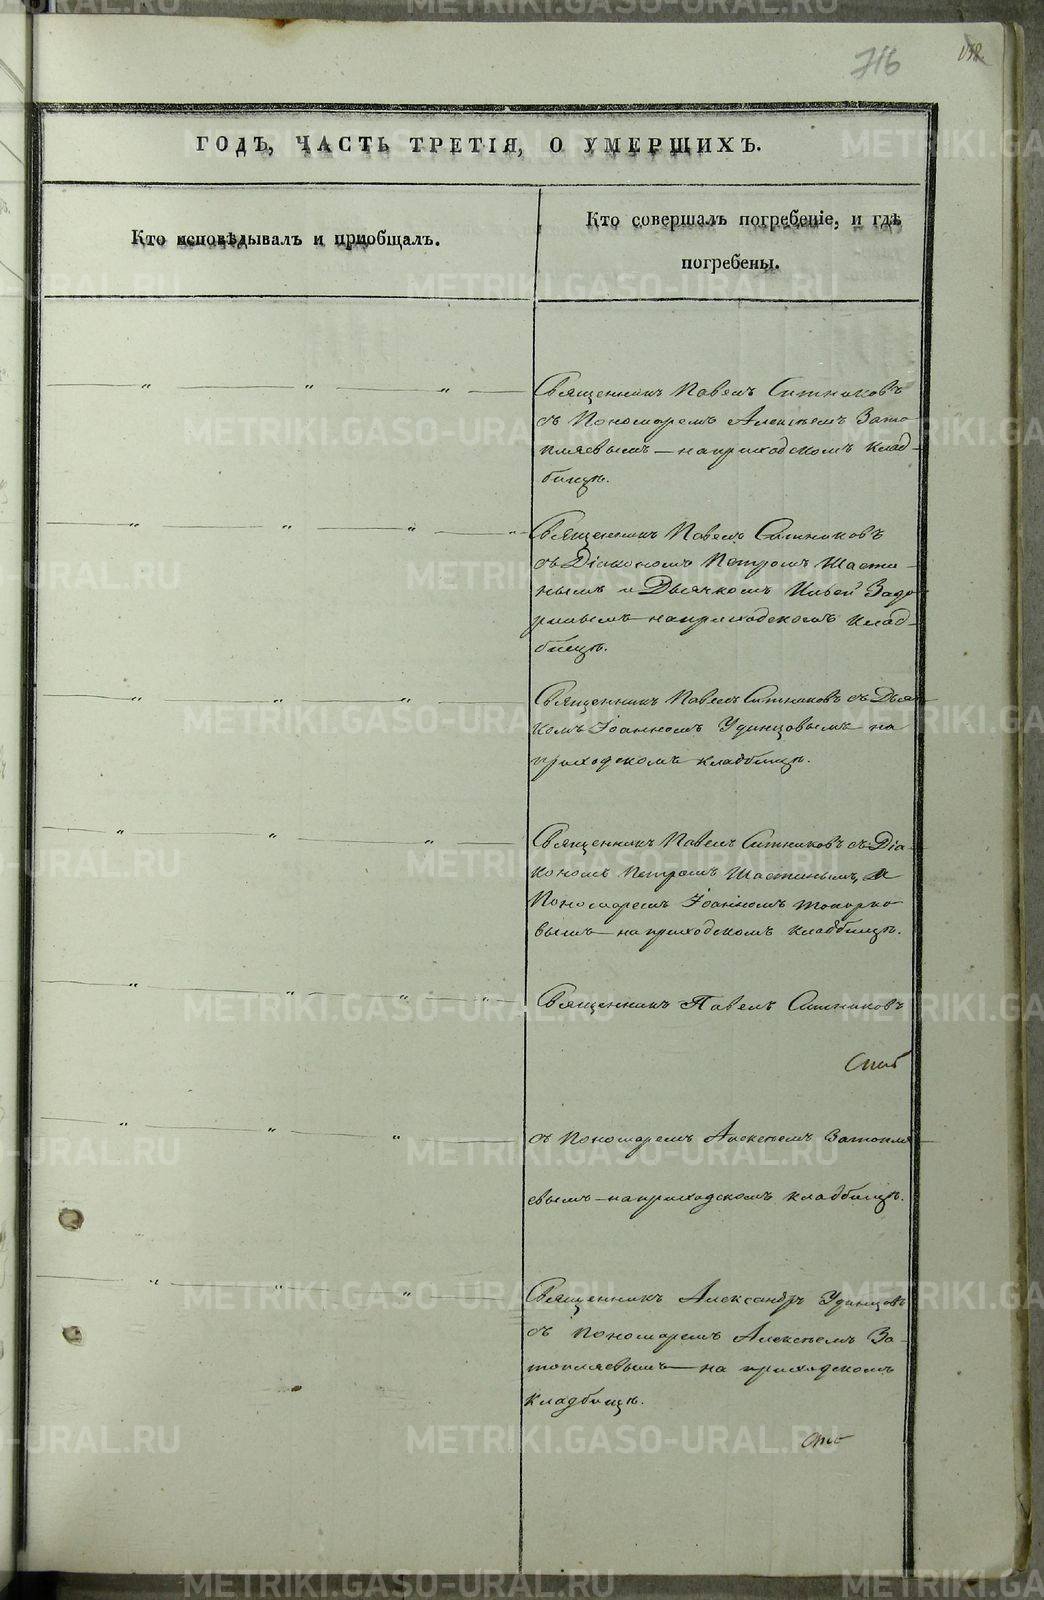 716
ГОДЪ, ЧАСТЬ ТРЕТІЯ, О УМЕРШИХЪ.
Кто исповѣдывалъ и приобщалъ.
Кто совершалъ погребеніе, и гдѣ
погребены.
Священникъ Павелъ Ситниковъ
съ Пономаремъ Алексѣемъ Зато
пляевымъ — на приходскомъ клад-
бищѣ.
Священникъ Павелъ Ситниковъ
съ Діакономъ Петромъ Шасти-
нымъ и Дьячкомъ Ильей Задо
ринымъ на приходскомъ клад-
бищѣ.
Священникъ Павелъ Ситниковъ съ Дьяч
комъ Іоанномъ Удинцовымъ на
приходскомъ кладбищѣ.
Священникъ Павелъ Ситниковъ съ Діа-
кономъ Петромъ Шастинымъ, и
Пономаремъ Іоанномъ Топорко
вымъ — на приходскомъ кладбищѣ.
Священникъ Павелъ Ситниковъ
съ Пономаремъ Алексѣемъ Затопля
евымъ — на приходскомъ кладбищѣ.
Священникъ Александръ Удинцовъ
съ Пономаремъ Алексѣемъ За-
топляевымъ — на приходскомъ
кладбищѣ.
METRIKI.GASO-URAL.RU